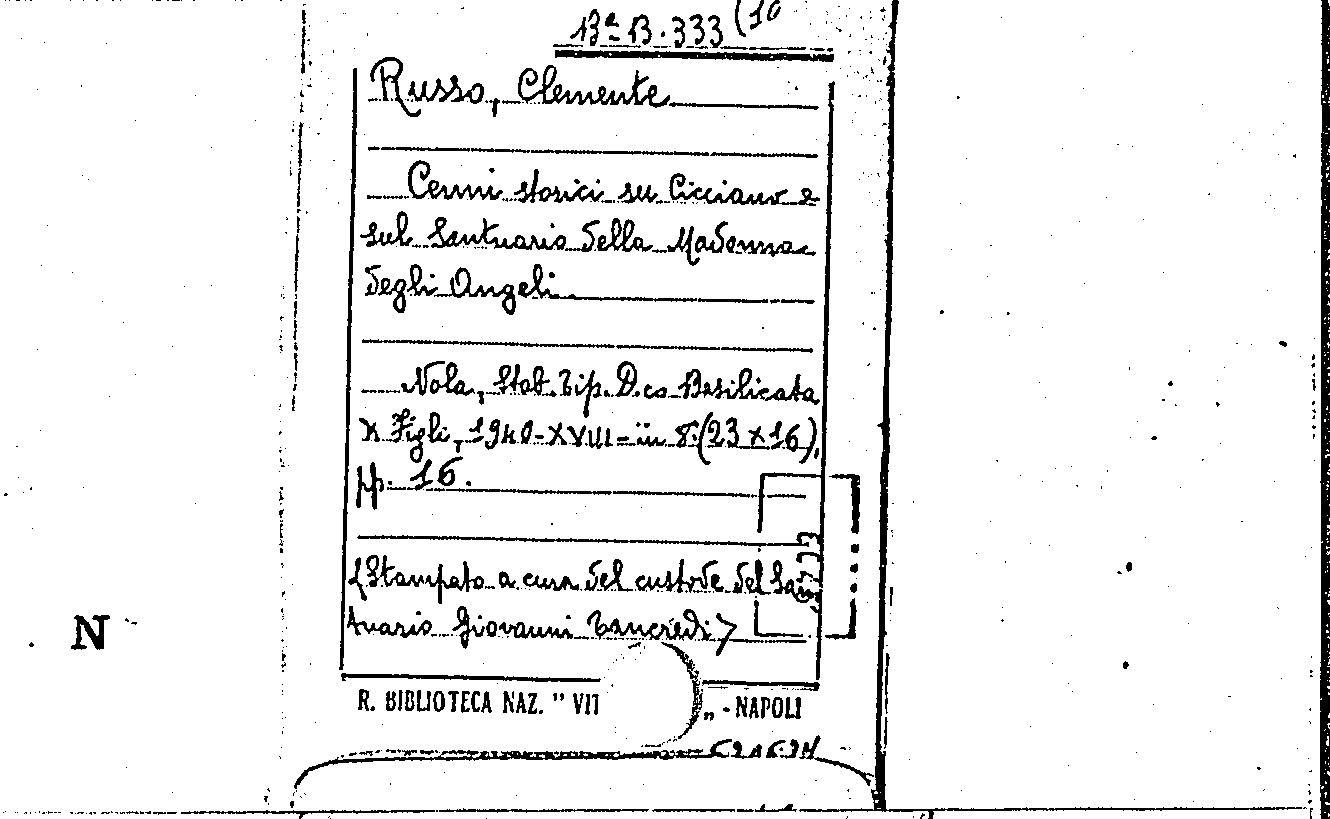 Bª B. 333 (10
Russo, Clemente
Cenni storici su Cicciano e
sul Santuario della Madonna
degli Angeli.
Nola, Stab. Tip. D.co Basilicata
& Figli, 1940-XVIII-in 8. (23 x 16),
pp. 16.
(Stampato a cura del custode del San-
tuario Giovanni Tancredi)
N
R. BIBLIOTECA NAZ. " VIT „ - NAPOLI